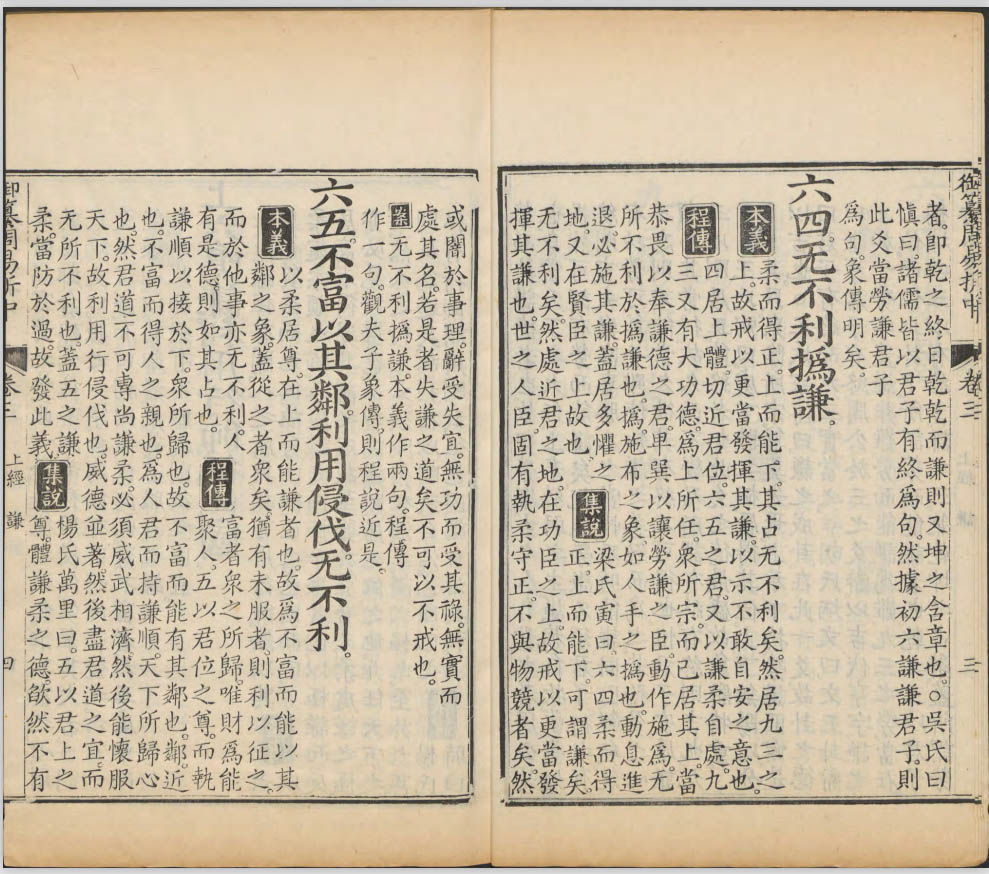 御纂周易折中 卷三 上經 謙 三
者。卽乾之終日乾乾而謙則又坤之含章也。○吳氏曰
愼曰。諸儒皆以君子有終爲句。然據初六謙謙君子。則
此爻當勞謙君子
爲句。象傳明矣。
六四。无不利撝謙。
本義 柔而得正。上而能下。其占无不利矣。然居九三之
上。故戒以更當發揮其謙。以示不敢自安之意也。
程傳 四居上體。切近君位。六五之君。又以謙柔自處。九
三又有大功德。爲上所任。衆所宗。而己居其上。當
恭畏以奉謙德之君。卑巽以讓勞謙之臣。動作施爲。无
所不利於撝謙也。撝。施布之象。如人手之撝也。動息進
退。必施其謙。蓋居多懼之
地。又在賢臣之上故也。
集說 梁氏寅曰。六四柔而得
正。上而能下。可謂謙矣。
无不利矣。然處近君之地。在功臣之上。故戒以更當發
揮其謙也。世之人臣。固有執柔守正。不與物競者矣。然
或闇於事理。辭受失宜。無功而受其祿。無實而
處其名。若是者失謙之道矣。不可以不戒也。
案 无不利撝謙。本義作兩句。程傳
作一句。觀夫子象傳。則程說近是。
六五。不富以其鄰。利用侵伐。无不利。
本義 以柔居尊。在上而能謙者也。故爲不富而能以其
鄰之象。蓋從之者衆矣。猶有未服者。則利以征之。
而於他事亦无不利。人
有是德。則如其占也。
程傳 富者衆之所歸。唯財爲能
聚人。五以君位之尊。而執
謙順以接於下。衆所歸也。故不富而能有其鄰也。鄰。近
也。不富而得人之親也。爲人君而持謙順。天下所歸心
也。然君道不可專尚謙柔。必須威武相濟。然後能懷服
天下。故利用行侵伐也。威德並著。然後盡君道之宜。而
无所不利也。蓋五之謙
柔。當防於過。故發此義。
集說 楊氏萬里曰。五以君上之
尊。體謙柔之德。欿然不有
御纂周易折中 卷三 上經 謙 四